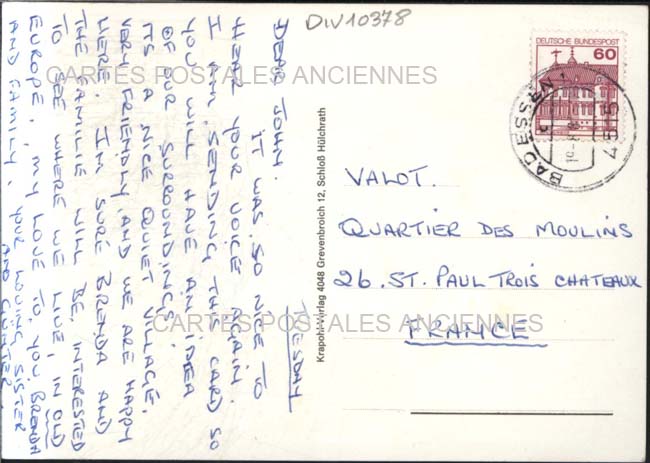 DIV10378
TUESDAY
DEAR JOHN.
IT WAS SO NICE TO
HEAR YOUR VOICE AGAIN.
I AM SENDING THIS CARD SO
YOU WILL HAVE AN IDEA
OF OUR SURROUNDINGS
ITS A NICE QUIET VILLAGE,
VERY FRIENDLY, AND WE ARE HAPPY
HERE. I'M SURE BRENDA AND
THE FAMILIE WILL BE INTERESTED
TO SEE WHERE WE LIVE, IN OLD
EUROPE, MY LOVE TO YOU, BRENDA
AND FAMILY, YOUR LOVING SISTER
AND GÜNTER
Krapohl-Verlag 4048 Grevenbroich 12, Schloß Hülchrath
DEUTSCHE BUNDESPOST
60
4515
BAD ESSEN
VALOT.
QUARTIER DES MOULINS
26. ST. PAUL TROIS CHATEAUX
FRANCE
CARTES POSTALES ANCIENNES
CARTES POSTALES ANCIENNES